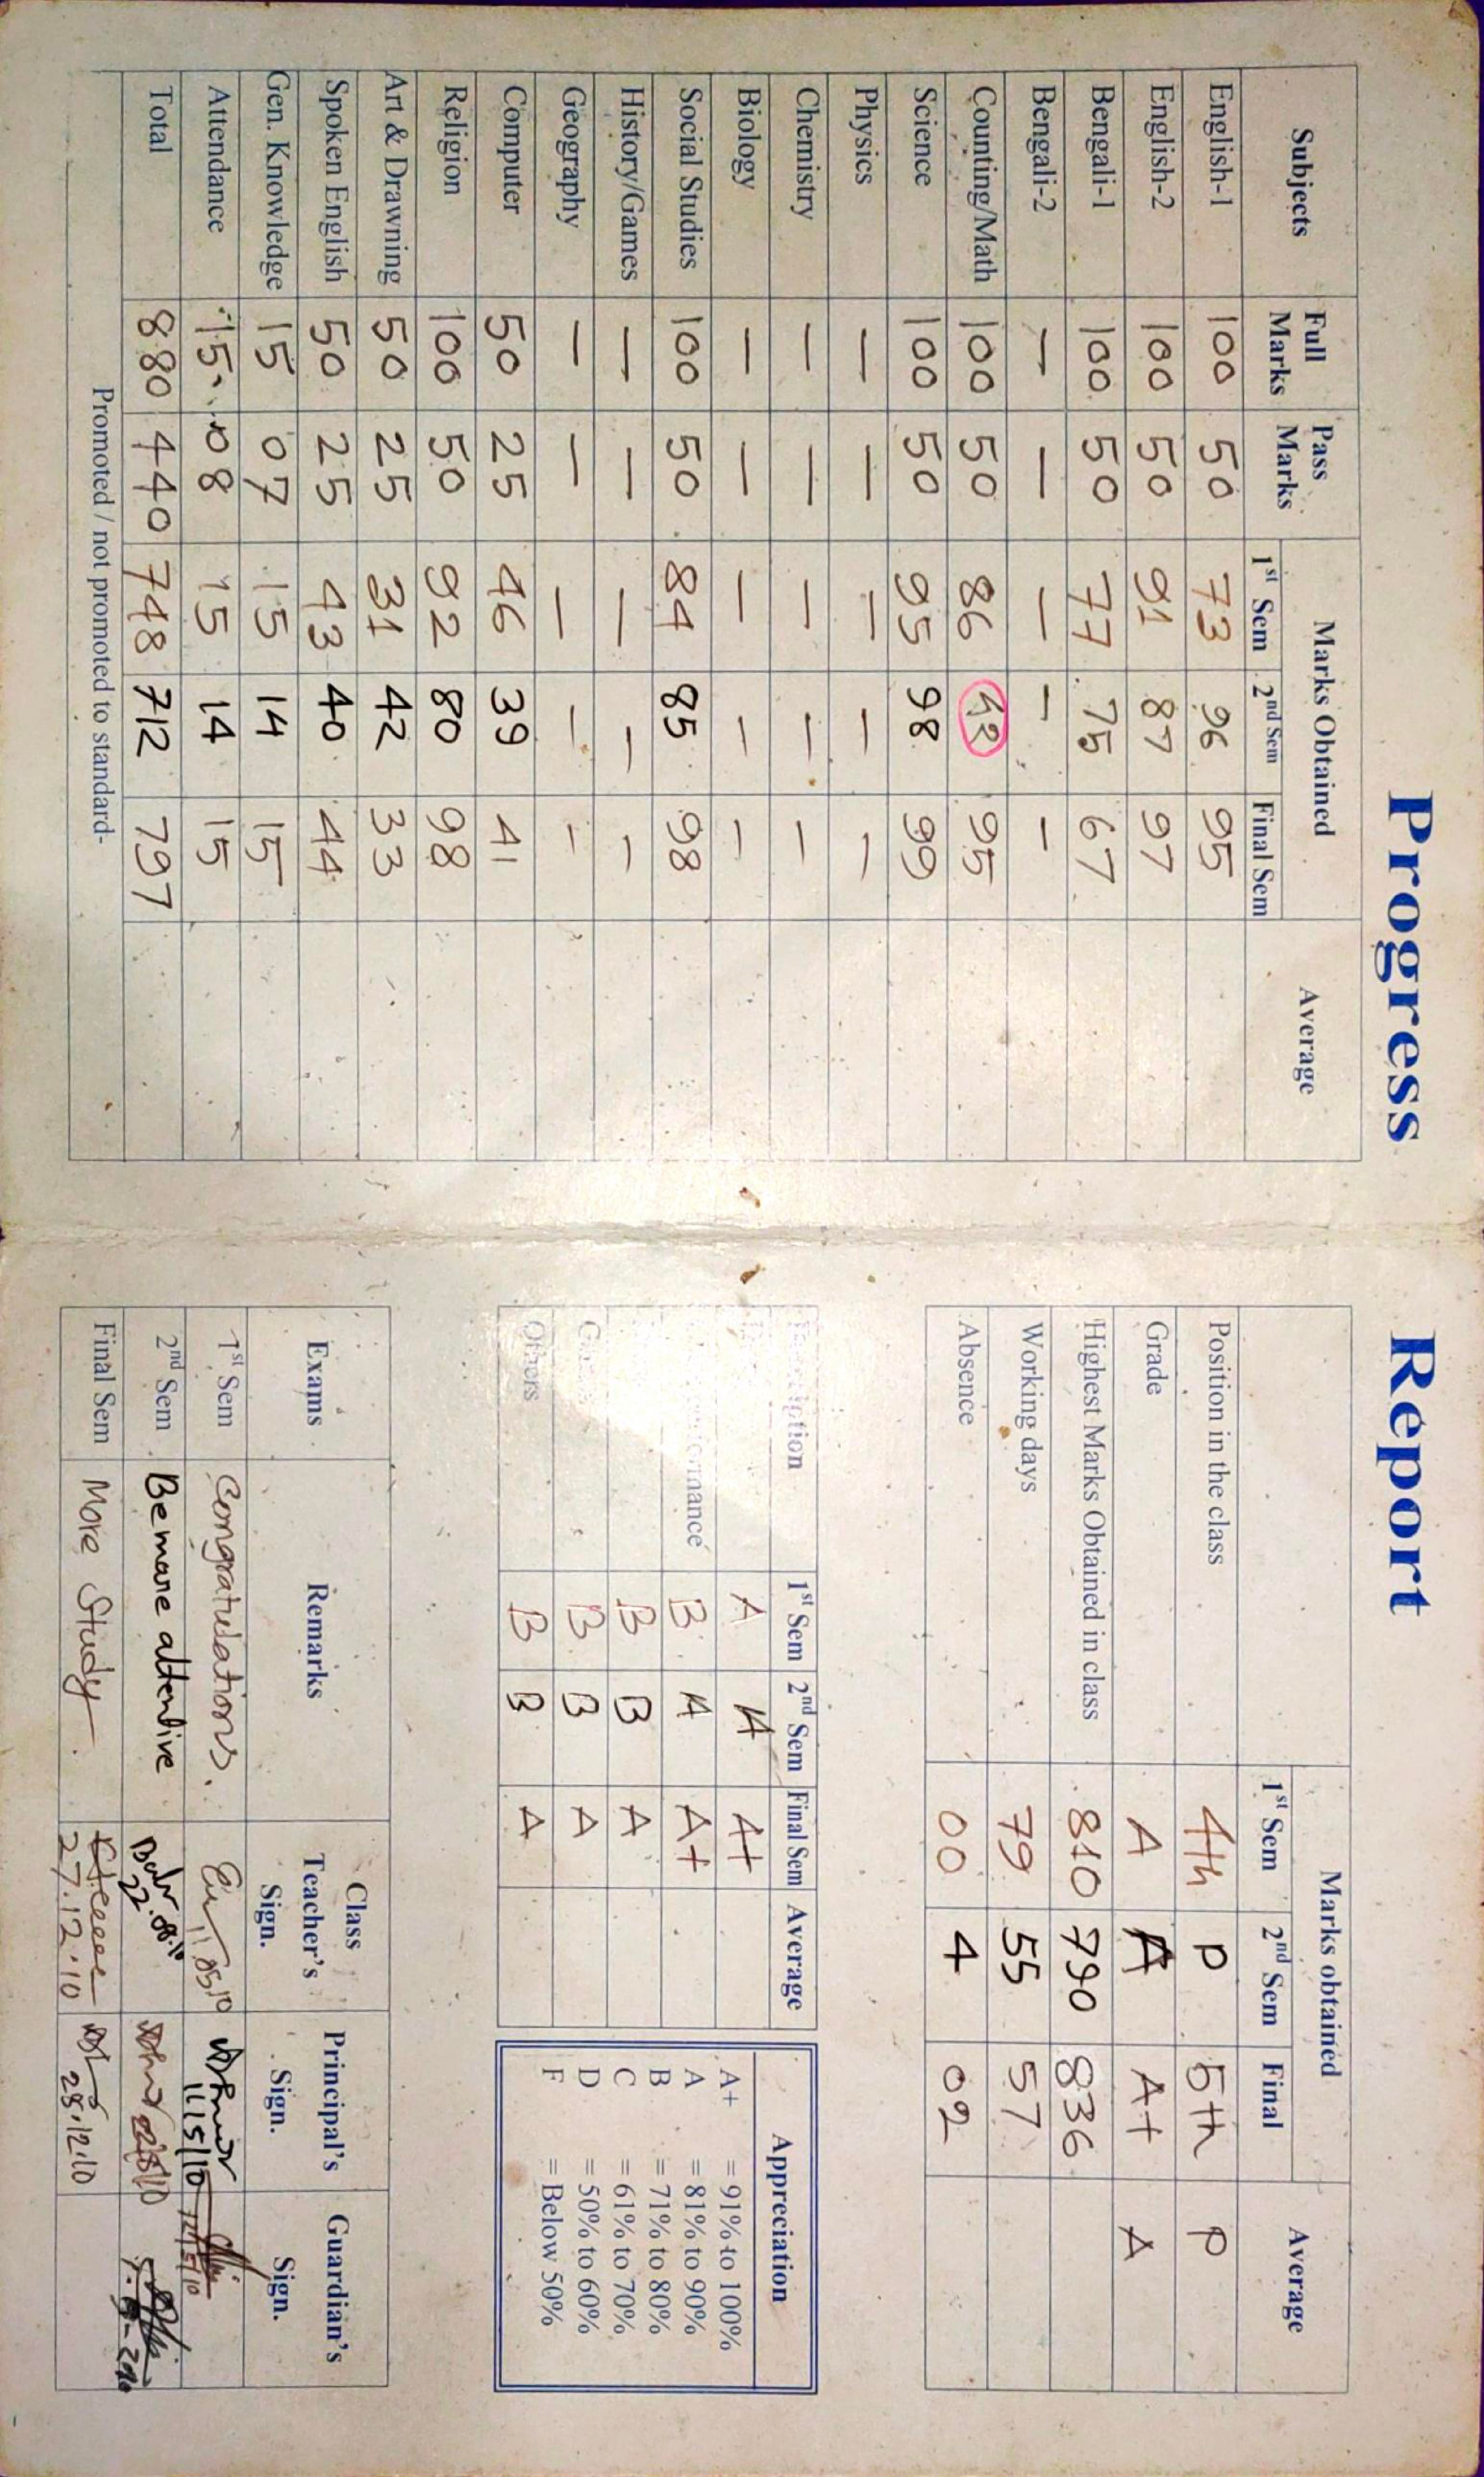 Progress Report
Subjects Full Marks Pass Marks Marks Obtained Average
1st Sem 2nd Sem Final Sem
English-1 100 50 73 96 95
English-2 100 50 91 87 97
Bengali-1 100 50 77 75 67
Bengali-2 — — — — —
Counting/Math 100 50 86 42 95
Science 100 50 95 98 99
Physics — — — — —
Chemistry — — — — —
Biology — — — — —
Social Studies 100 50 84 85 98
History/Games — — — — —
Geography — — — — —
Computer 50 25 46 39 41
Religion 100 50 92 80 98
Art & Drawning 50 25 31 42 33
Spoken English 50 25 43 40 44
Gen. Knowledge 15 07 15 14 15
Attendance 15 08 15 14 15
Total 880 440 748 712 797
Promoted / not promoted to standard-
Marks obtained Average
1st Sem 2nd Sem Final
Position in the class 4th P 5th P
Grade A A A+ A
Highest Marks Obtained in class 810 790 836
Working days 79 55 57
Absence 00 4 02
Description 1st Sem 2nd Sem Final Sem Average
A A A+
B A A+
B B A
B B A
Others B B A
Appreciation
A+ = 91% to 100%
A = 81% to 90%
B = 71% to 80%
C = 61% to 70%
D = 50% to 60%
F = Below 50%
Exams Remarks Class Teacher's Sign. Principal's Sign. Guardian's Sign.
1st Sem Congratulations. 11.05.10 11/5/10 12/5/10
2nd Sem Be more attentive 22.08.10 22/8/10
Final Sem More Study 27.12.10 28.12.10